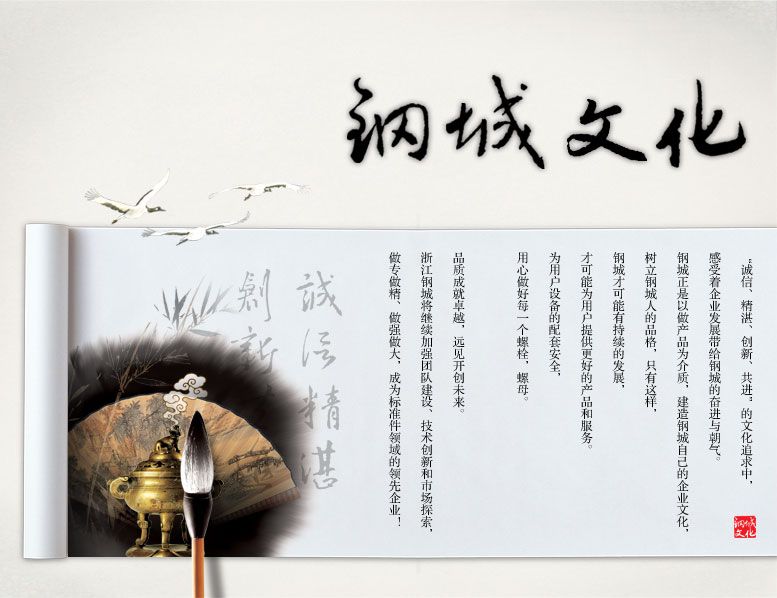 钢城文化
“诚信、精湛、创新、共进”的文化追求中，
感受着企业发展带给钢城的奋进与朝气。
钢城正是以做产品为介质，建造钢城自己的企业文化，
树立钢城人的品格，只有这样，
钢城才可能有持续的发展，
才可能为用户提供更好的产品和服务。
为用户设备的配套安全，
用心做好每一个螺栓，螺母。
品质成就卓越，远见开创未来。
浙江钢城将继续加强团队建设、技术创新和市场探索，
做专做精、做强做大，成为标准件领域的领先企业！
誠信精湛
創新
钢城
文化